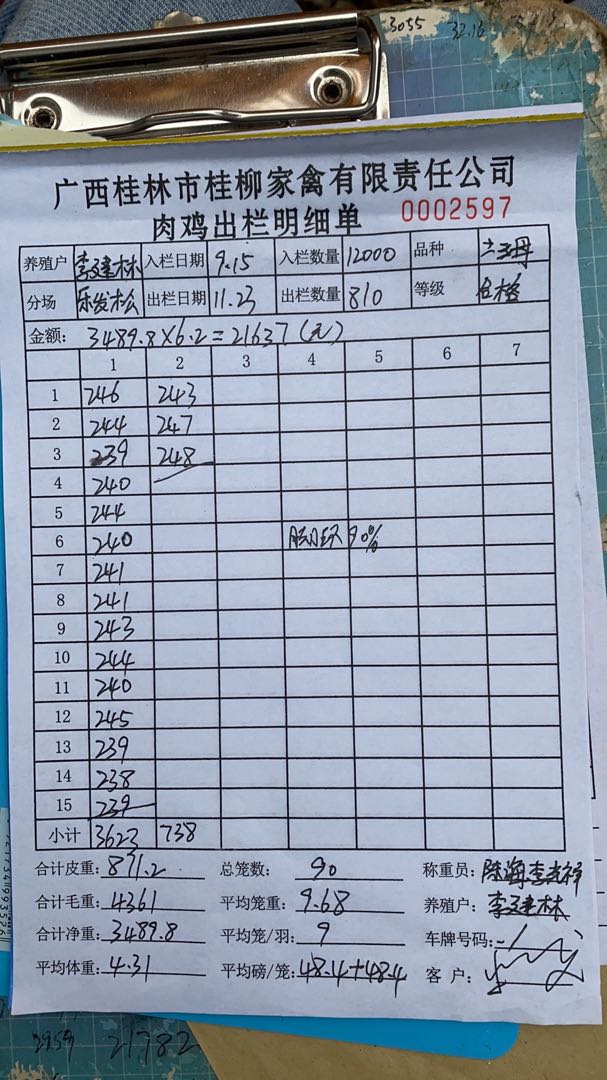 3055 32.16
广西桂林市桂柳家禽有限责任公司
肉鸡出栏明细单 0002597
养殖户 李建林 入栏日期 9.15 入栏数量 12000 品种
分场 乐发松 出栏日期 11.23 出栏数量 810 等级 合格
金额: 3489.8×6.2=21637(元)
1 2 3 4 5 6 7
1 246 243
2 244 247
3 239 248
4 240
5 244
6 240 90%
7 241
8 241
9 243
10 244
11 240
12 245
13 239
14 238
15 239
小计 3623 738
合计皮重: 871.2 总笼数: 90 称重员: 陈海 李吉祥
合计毛重: 4361 平均笼重: 9.68 养殖户: 李建林
合计净重: 3489.8 平均笼/羽: 9 车牌号码:
平均体重: 4.31 平均磅/笼: 48.4+48.4 客户:
2959 21782